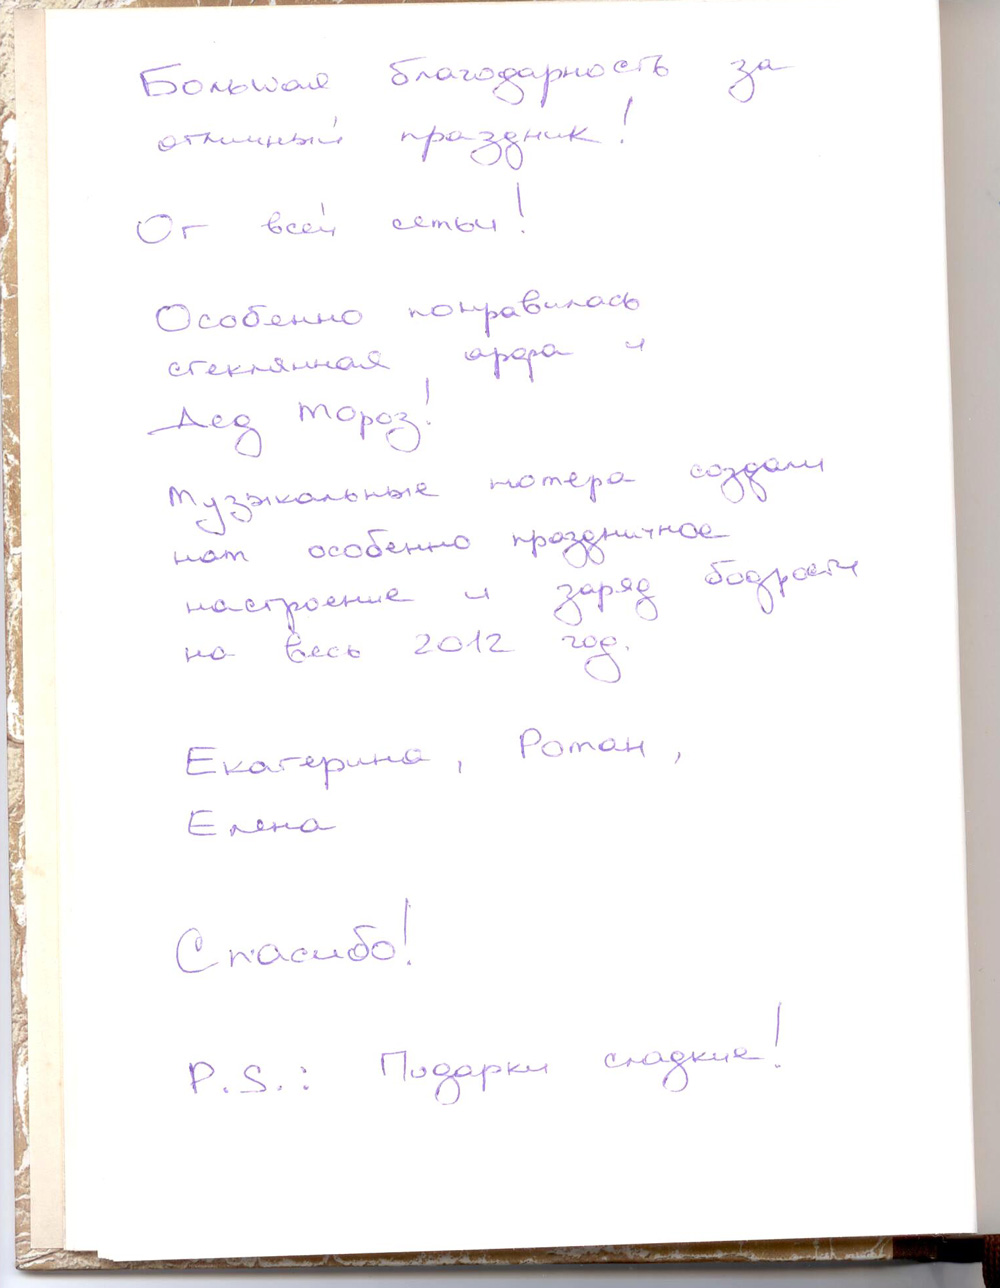 Большая благодарность за
отличный праздник!
От всей семьи!
Особенно понравилась
стеклянная арфа и
Дед Мороз!
Музыкальные номера создали
нам особенно праздничное
настроение и заряд бодрости
на весь 2012 год.
Екатерина, Роман,
Елена
Спасибо!
P.S.: Подарки сладкие!